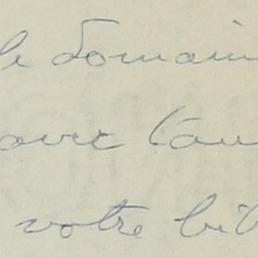 le domain
avec l'au
votre bib